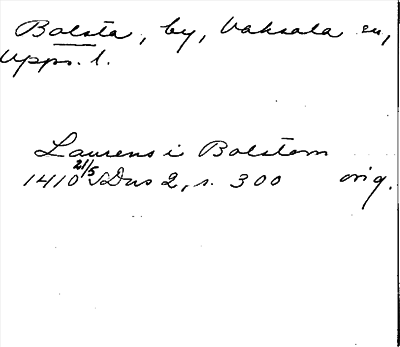 Bolsta, by, Vaksala sn,
Upps. l.
Laurens i Bolstom
1410 21/5 SDns 2, s. 300 orig.